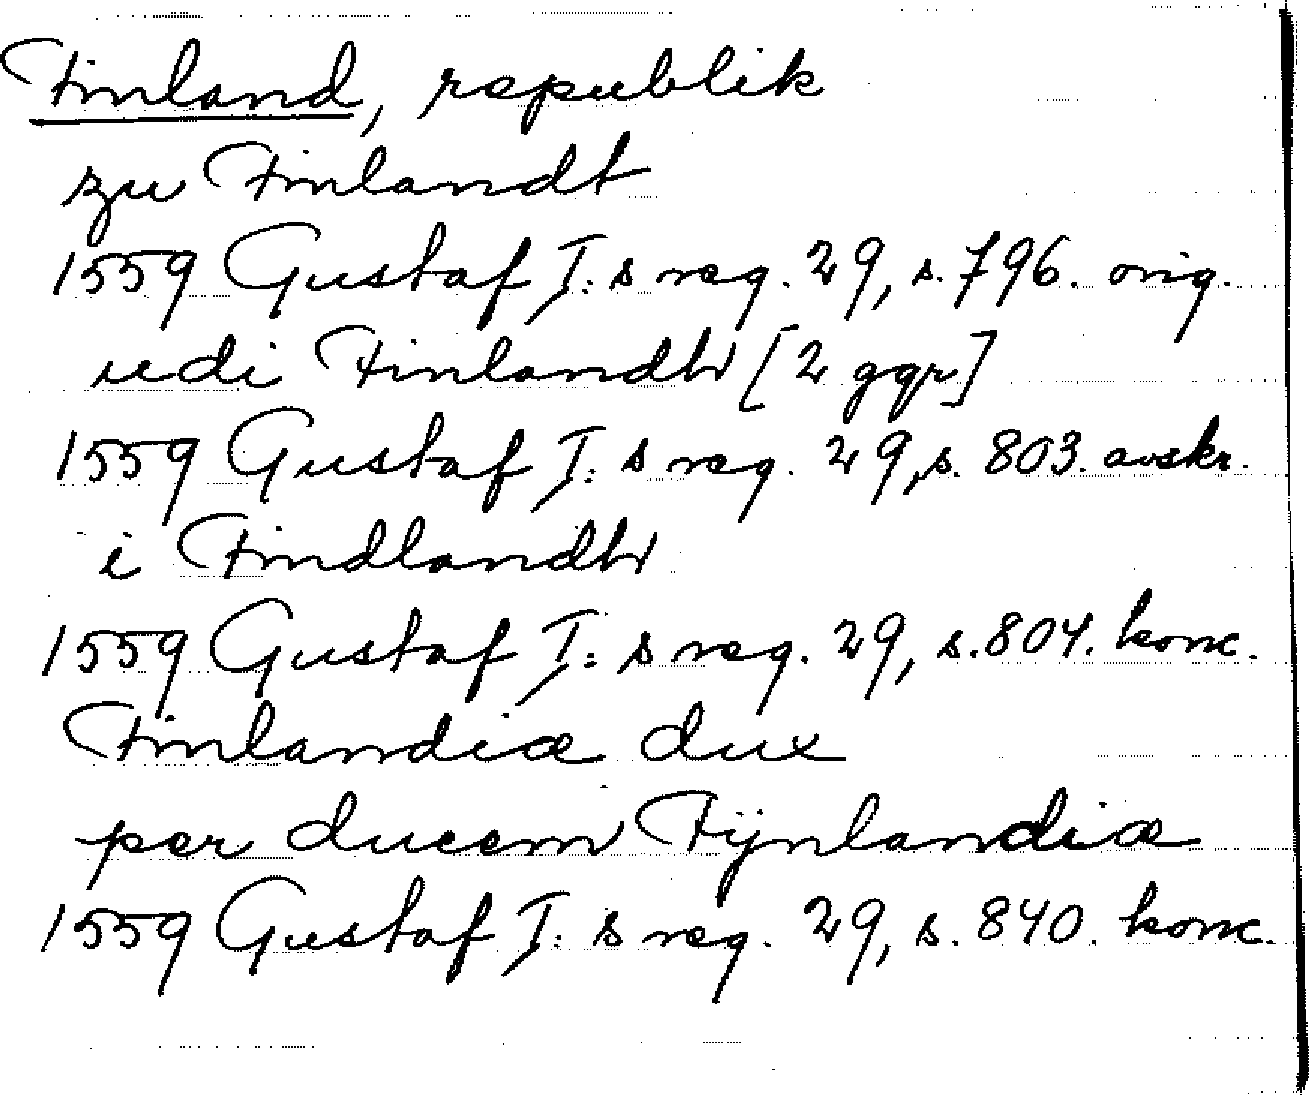 Finland, republik
zu Finlandt
1559 Gustaf I:s reg. 29, s. 796. orig.
udi Finlandh [2 ggr]
1559 Gustaf I:s reg. 29, s. 803. avskr.
i Findlandh
1559 Gustaf I:s reg. 29, s. 804. konc.
Finlandiæ dux
per ducem Fijnlandiæ
1559 Gustaf I:s reg. 29, s. 840. konc.